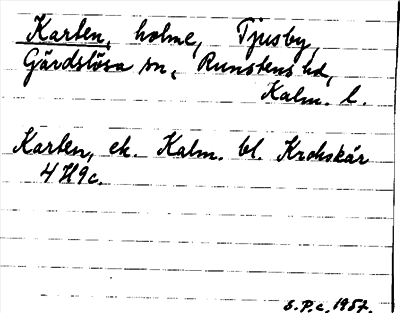 Karten, holme, Tjusby,
Gärdslösa sn, Runstens hd,
Kalm. l.
Karten, ek. Kalm. bl. Krokskär
4 H 9 c.
S.P.c. 1957.